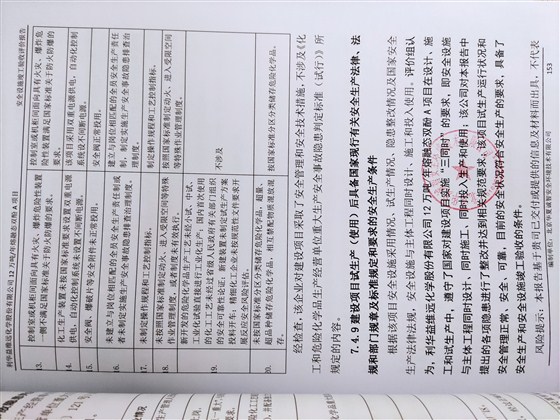 利华益维远化学股份有限公司 12 万吨/年熔融态双酚 A 项目 安全设施竣工验收评价报告
13. 控制室或机柜间面向具有火灾、爆炸危险性装置一侧不满足国家标准关于防火防爆的要求。
控制室或机柜间面向具有火灾、爆炸危险性装置满足国家标准关于防火防爆的要求。
14. 化工生产装置未按国家标准要求设置双重电源供电,自动化控制系统未设置不间断电源。
本项目采用双重电源供电,自动化控制系统设不间断电源。
15. 安全阀、爆破片等安全附件未正常投用。
安全阀正常投用。
16. 未建立与岗位相匹配的全员安全生产责任制或者未制定实施生产安全事故隐患排查治理制度。
建立与岗位相匹配的全员安全生产责任制,制定实施生产安全事故隐患排查治理制度。
17. 未制定操作规程和工艺控制指标。
制定操作规程和工艺控制指标。
18. 未按照国家标准制定动火、进入受限空间等特殊作业管理制度,或者制度未有效执行。
按照国家标准制定动火、进入受限空间等特殊作业管理制度。
19. 新开发的危险化学品生产工艺未经小试、中试、工业化试验直接进行工业化生产;国内首次使用的化工工艺未经过省级人民政府有关部门组织的安全可靠性论证;新建装置未制定试生产方案投料开车;精细化工企业未按规范性文件要求开展反应安全风险评估。
不涉及
20. 未按国家标准分区分类储存危险化学品,超量、超品种储存危险化学品,相互禁配物质混放混存。
按国家标准分区分类储存危险化学品。
经检查:该企业对建设项目采取了安全管理和安全技术措施,不涉及《化
工和危险化学品生产经营单位重大生产安全事故隐患判定标准(试行)》所
规定的内容。
7.4.9 建设项目试生产(使用)后具备国家现行有关安全生产法律、法
规和部门规章及标准规定和要求的安全生产条件
根据该项目安全设施采用情况、试生产情况、隐患整改情况及国家安全
生产法律法规,安全设施与主体工程同时设计、施工和投入使用。评价组认
为,利华益维远化学股份有限公司 12 万吨/年熔融态双酚 A 项目在设计、施
工和试生产中,遵守了国家对建设项目实施“三同时”的要求,即安全设施
与主体工程同时设计、同时施工、同时投入生产和使用;该公司对本报告中
提出的各项隐患进行了整改并达到相关规范要求。该项目试生产运行状况和
安全管理正常、安全、可靠,目前的安全状况符合安全生产的要求,具备了
安全生产和安全设施竣工验收的条件。
风险提示:本报告基于贵司已交付或提供的信息及材料而出具,不代表
153